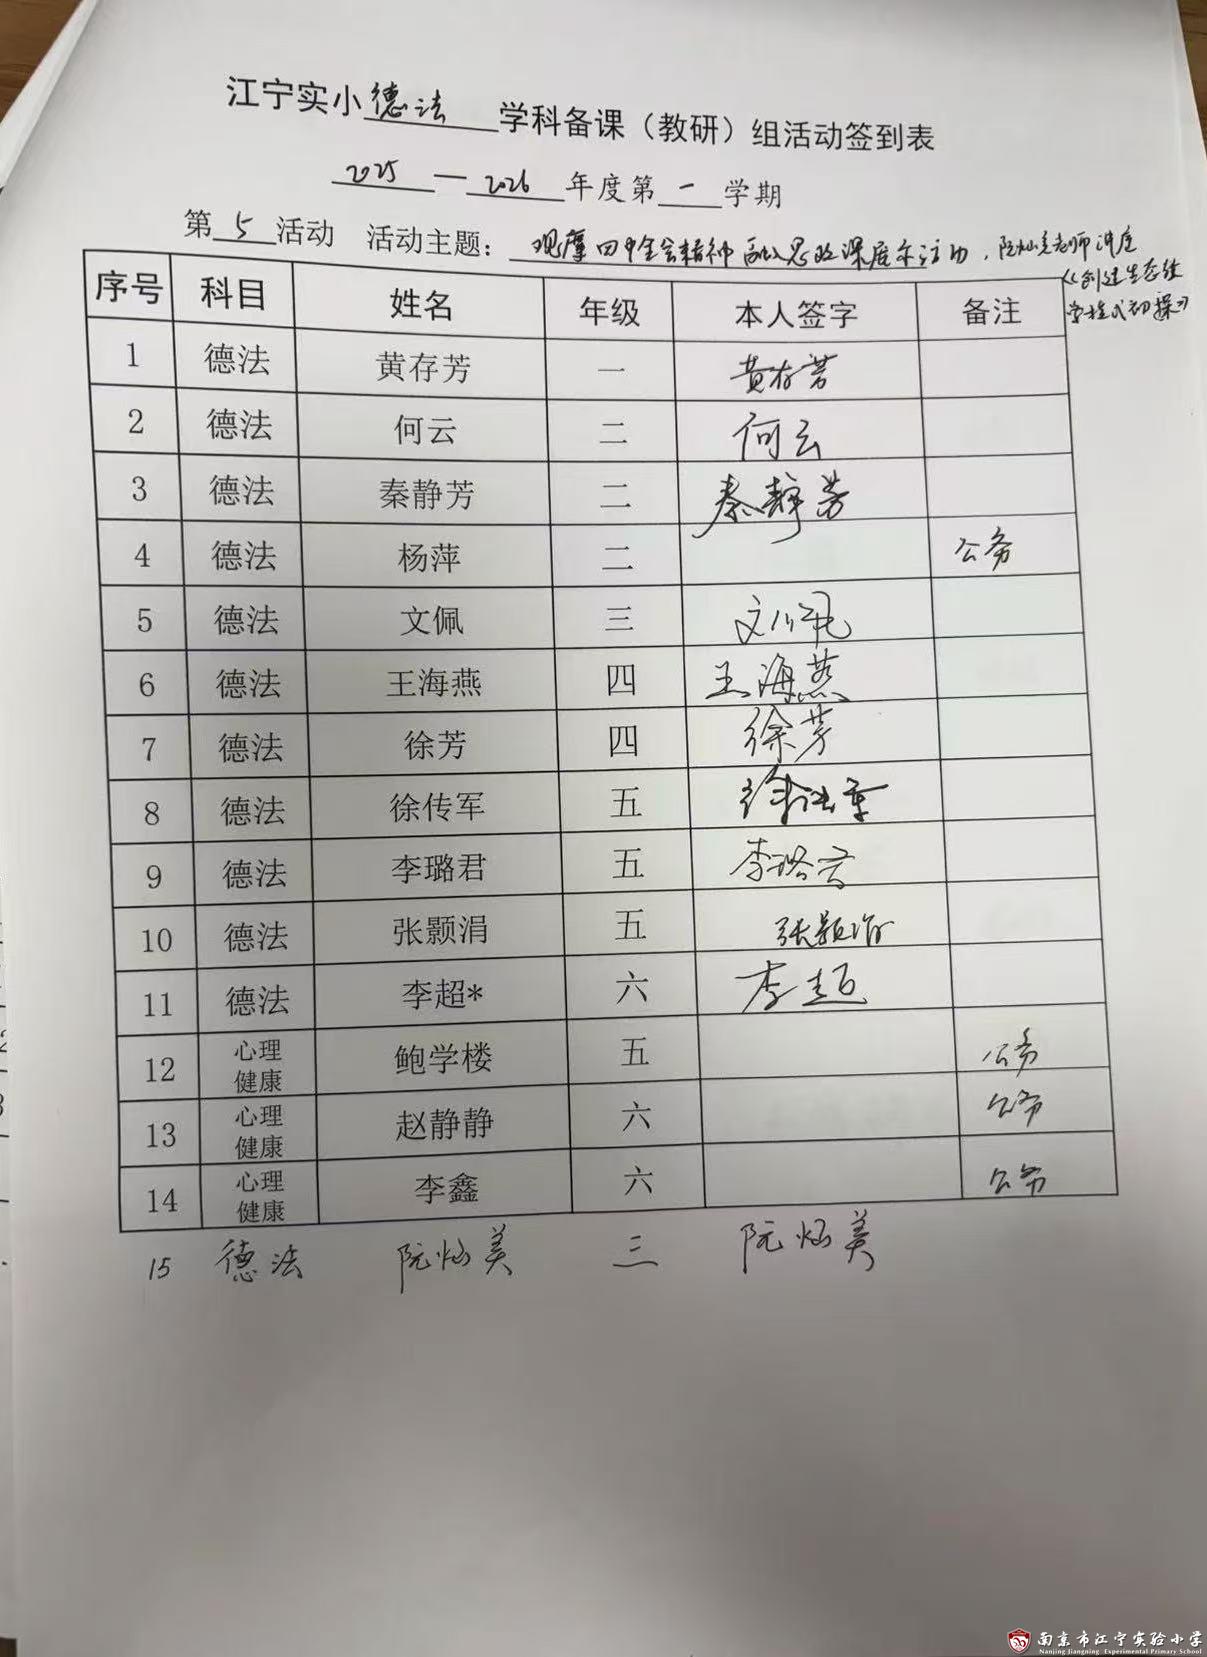 江宁实小 德法 学科备课（教研）组活动签到表
2025 — 2026 年度第 一 学期
第 5 活动 活动主题： 观摩四中全会精神融入思政深度 活动，阮灿美老师讲座
《创建生态
学 式初探》
序号 科目 姓名 年级 本人签字 备注
1 德法 黄存芳 一 黄存芳
2 德法 何云 二 何云
3 德法 秦静芳 二 秦静芳
4 德法 杨萍 二 公务
5 德法 文佩 三 文佩
6 德法 王海燕 四 王海燕
7 德法 徐芳 四 徐芳
8 德法 徐传军 五 徐传军
9 德法 李璐君 五 李璐君
10 德法 张颢涓 五 张颢涓
11 德法 李超* 六 李超
12 心理健康 鲍学楼 五 公务
13 心理健康 赵静静 六 公务
14 心理健康 李鑫 六 公务
15 德法 阮灿美 三 阮灿美
南京市江宁实验小学
Nanjing Jiangning Experimental Primary School